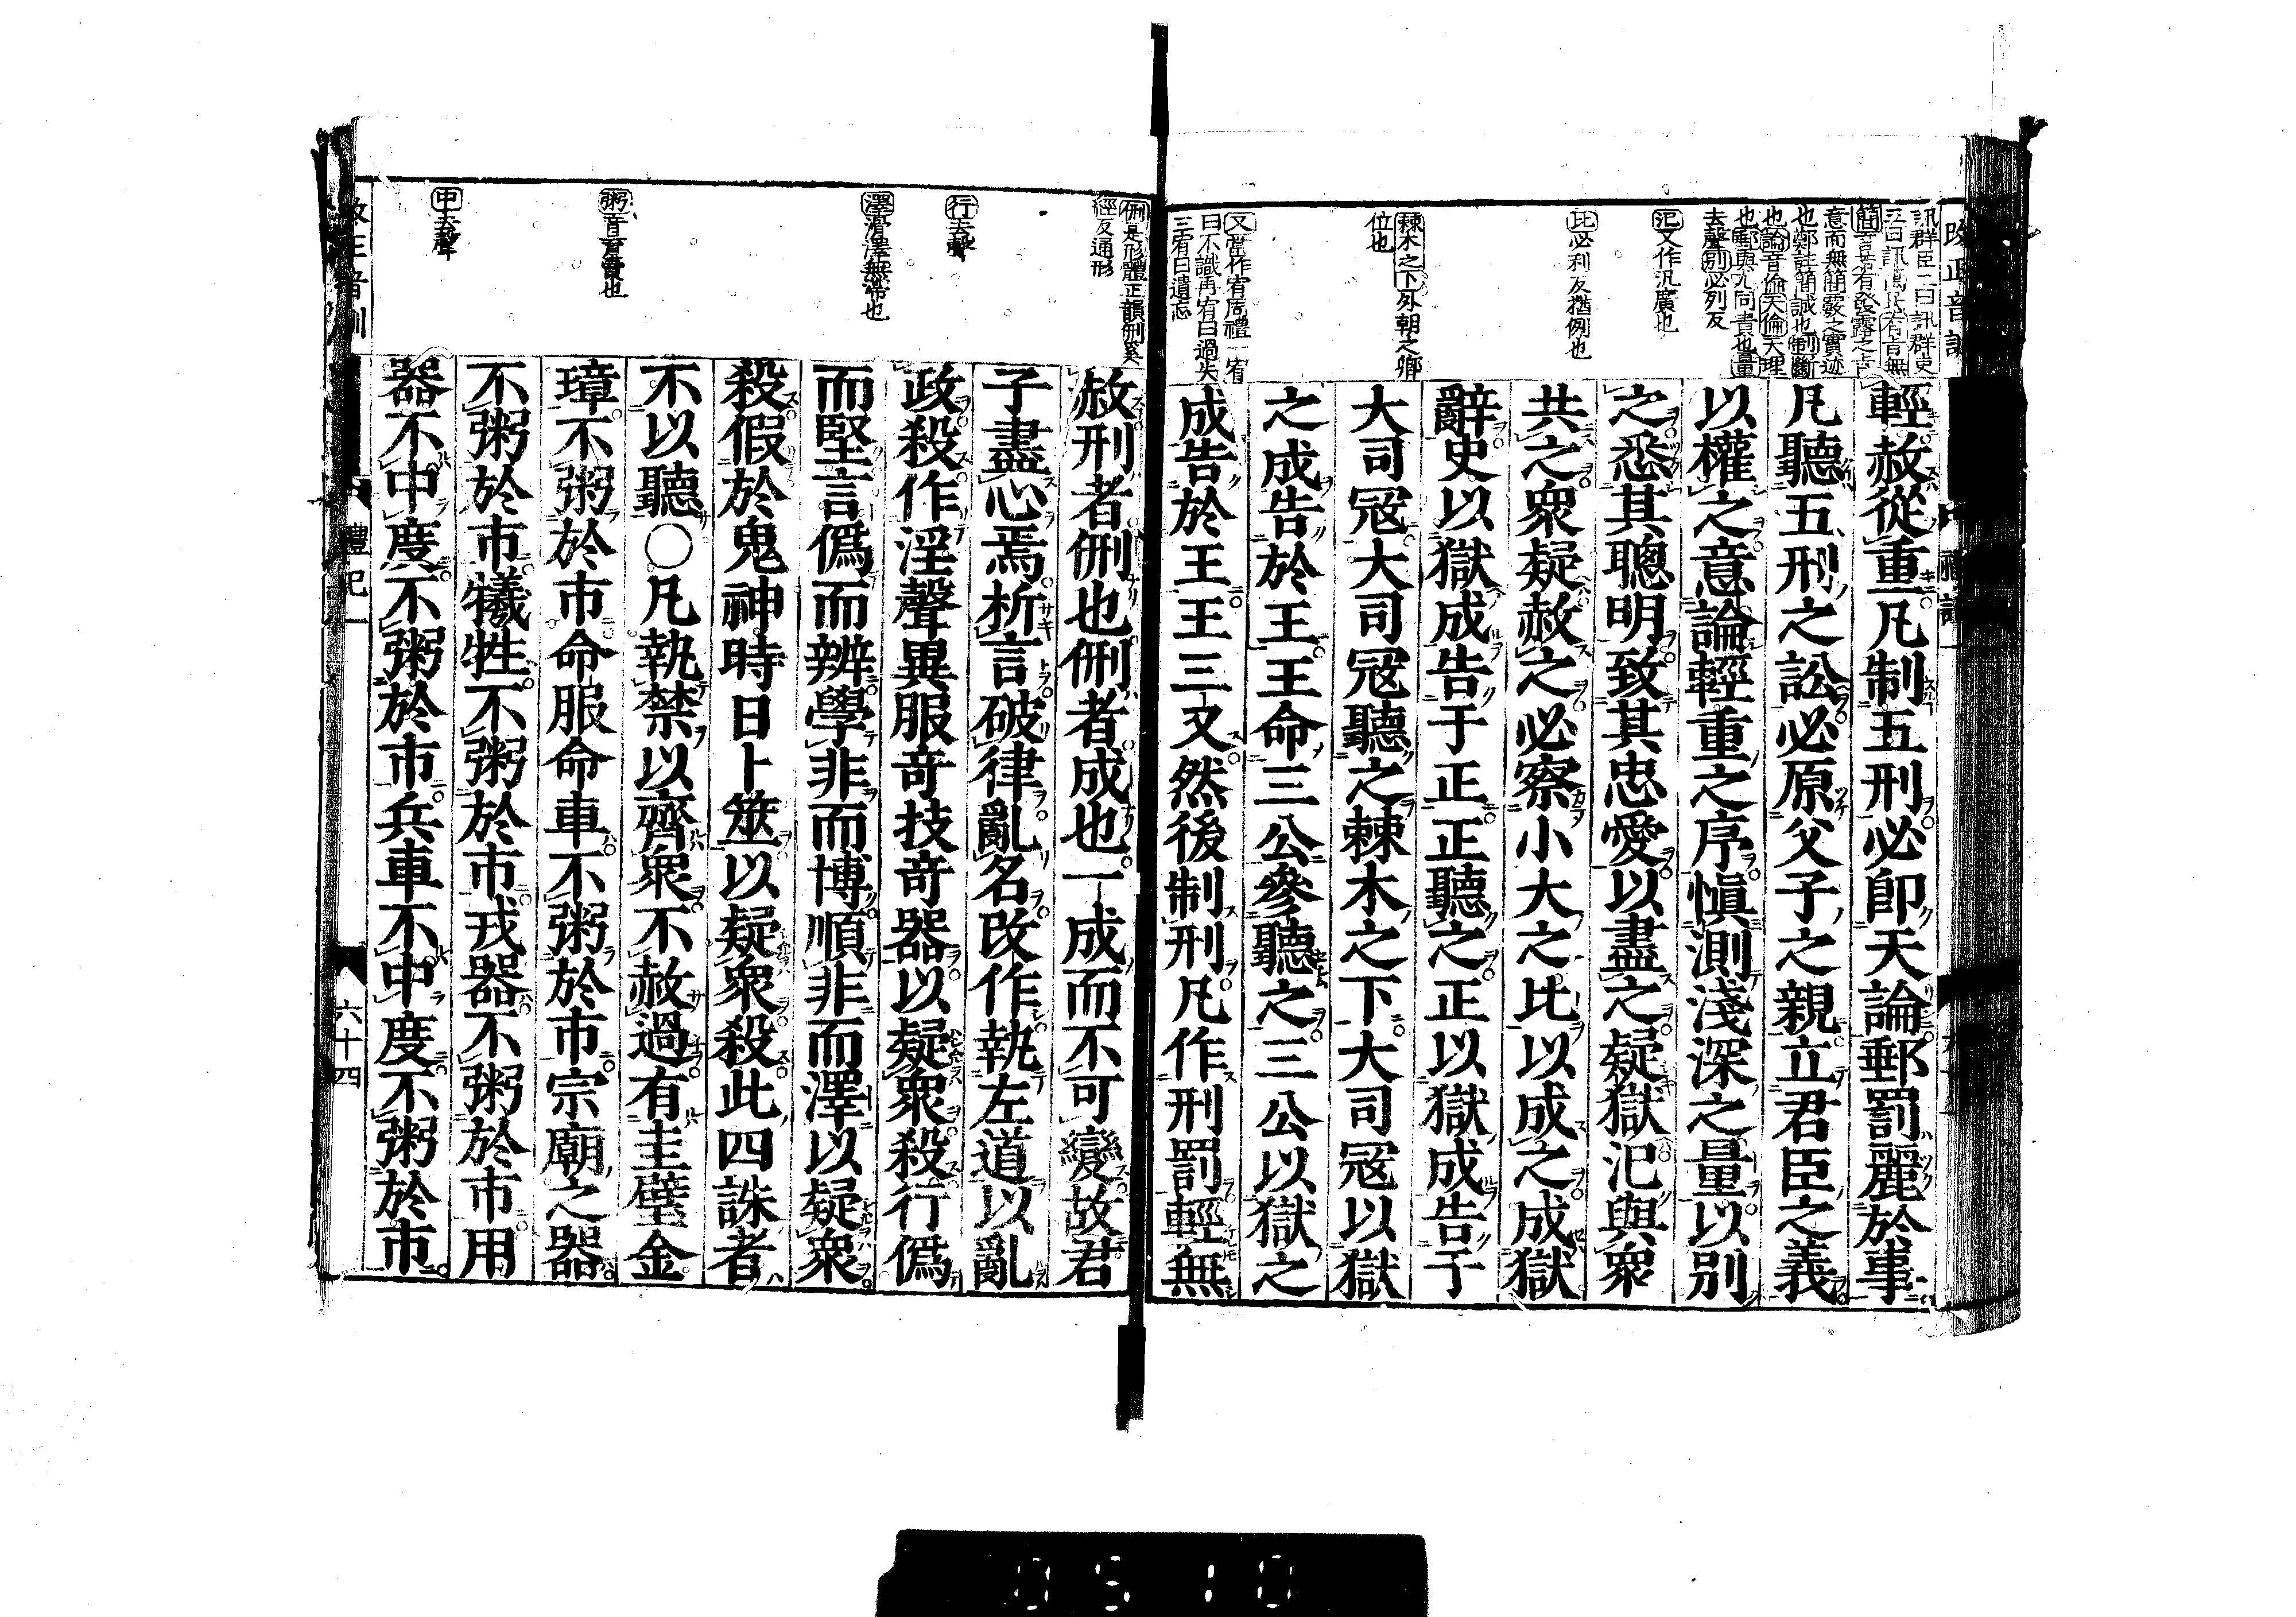 改正音訓
訊群臣二曰訊群吏
三曰訊萬民有旨無
簡言若有發露之旨
意而無簡覈之實迹
也鄭註簡誠也制斷
也論音倫天倫天理
也郵與尤同責也量
去聲別必列反
氾又作汎廣也
比必利反猶例也
棘木之下外朝之卿
位也
又當作宥周禮一宥
曰不識再宥曰過失
三宥曰遺忘
輕赦從重凡制五刑必卽天論郵罰麗於事
凡聽五刑之訟必原父子之親立君臣之義
以權之意論輕重之序愼測淺深之量以別
之悉其聰明致其忠愛以盡之疑獄氾與衆
共之衆疑赦之必察小大之比以成之成獄
辭史以獄成告于正正聽之正以獄成告于
大司冦大司冦聽之棘木之下大司冦以獄
之成告於王王命三公參聽之三公以獄之
成告於王王三又然後制刑凡作刑罰輕無
侀是形體正韻侀奚
經反通形
行去聲
澤滑澤無滯也
粥音育賣也
中去聲
赦刑者侀也侀者成也一成而不可變故君
子盡心焉析言破律亂名改作執左道以亂
政殺作淫聲異服竒技竒器以疑衆殺行僞
而堅言僞而辨學非而博順非而澤以疑衆
殺假於鬼神時日卜筮以疑衆殺此四誅者
不以聽○凡執禁以齊衆不赦過有圭璧金
璋不粥於市命服命車不粥於市宗廟之器
不粥於市犧牲不粥於市戎器不粥於市用
器不中度不粥於市兵車不中度不粥於市
禮記一
六十四
0510